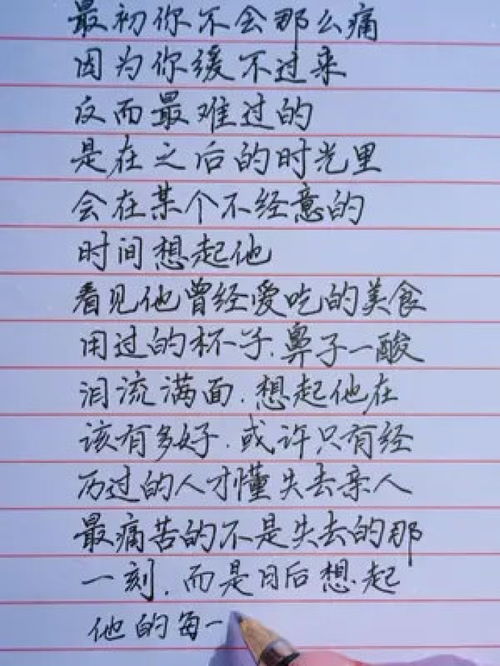 最初你不会那么痛
因为你缓不过来
反而最难过的
是在之后的时光里
会在某个不经意的
时间想起他
看见他曾经爱吃的美食
用过的杯子.鼻子一酸
泪流满面.想起他在
该有多好.或许只有经
历过的人才懂失去亲人
最痛苦的不是失去的那
一刻.而是日后想起
他的每一